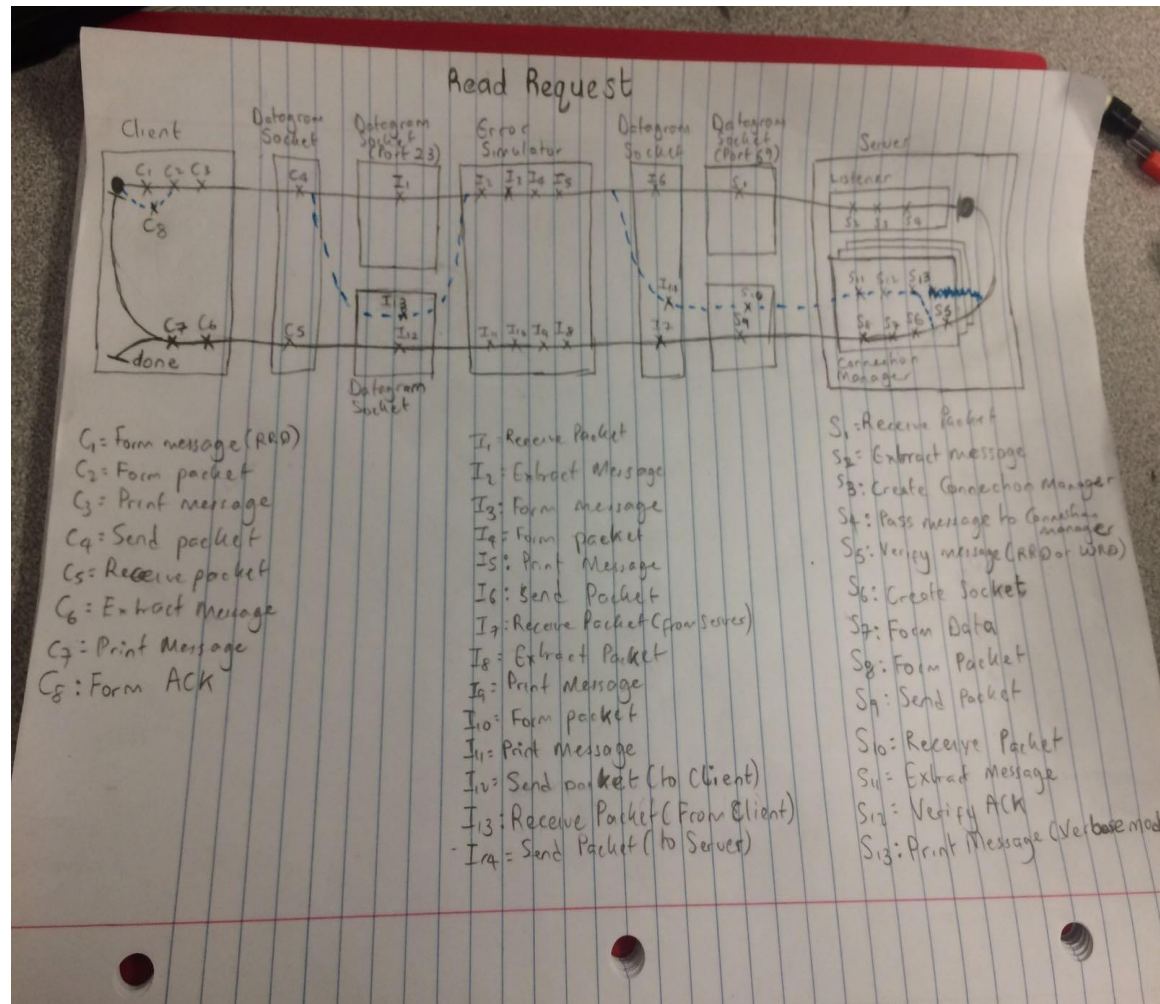 Read Request
Client
Datagram
Socket
Datagram
Socket
(Port 23)
Error
Simulator
Datagram
Socket
Datagram
Socket
(Port 69)
Server
Listener
C1 C2 C3
C8
C4
I1
I2 I3 I4 I5
I6
S1
S2 S3 S4
I13
I14
S10
S11 S12 S13
C7 C6
C5
I12
I11 I10 I9 I8
I7
S9
S8 S7 S6 S5
done
Datagram
Socket
Connection
Manager
C1= Form message (RRQ)
C2= Form packet
C3= Print message
C4= Send packet
C5= Receive packet
C6: Extract Message
C7= Print Message
C8: Form ACK
I1= Receive Packet
I2= Extract Message
I3: Form message
I4= Form packet
I5: Print Message
I6: Send Packet
I7: Receive Packet (from Server)
I8= Extract Packet
I9= Print Message
I10= Form packet
I11= Print Message
I12= Send packet (to Client)
I13: Receive Packet (From Client)
I14= Send Packet (to Server)
S1=Receive Packet
S2= Extract message
S3: Create Connection Manager
S4: Pass message to Connection
manager
S5: Verify message (RRQ or WRQ)
S6: Create Socket
S7: Form Data
S8: Form Packet
S9: Send Packet
S10: Receive Packet
S11= Extract Message
S12= Verify ACK
S13: Print Message (Verbose mod